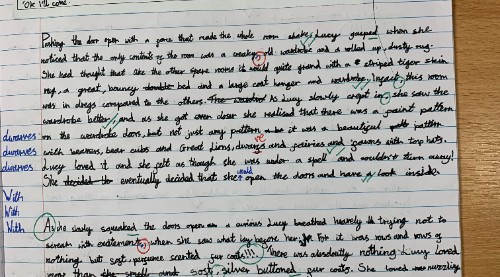 "Ok I'll come.
Pushing the door open with a force that made the whole room shake, Lucy gasped when she
noticed that the only contents of the room was a creaky, old wardrobe and a rolled up, dusty rug.
She had thought that like the other spare rooms it would quite grand with a striped tiger skin
rug, a great, bouncy bed and a large coat hanger and wardrobe. In fact, this room
was in drags compared to the others. As Lucy slowly crept in, she saw the
wardrobe better, and as she got even closer she realised that there was a faint pattern
dwarves on the wardrobe doors, but not just any pattern it was a beautiful pattern
dwarves with beavers, bear cubs and Great Lions, dwarves and fairies and fauns with top hats.
dwarves Lucy loved it and she felt as though she was under a spell and wouldn't turn away!
She eventually decided that she would open the doors and have a look inside.
With
With
With As the only squeaked the doors open a curious Lucy breathed heavily trying not to
scream with excitement, when she saw what lay before her. For it was rows and rows of
nothing but soft, perfume scented fur coats!!! There was absolutely nothing Lucy loved
more than soft, silver buttoned fur coats. She loved